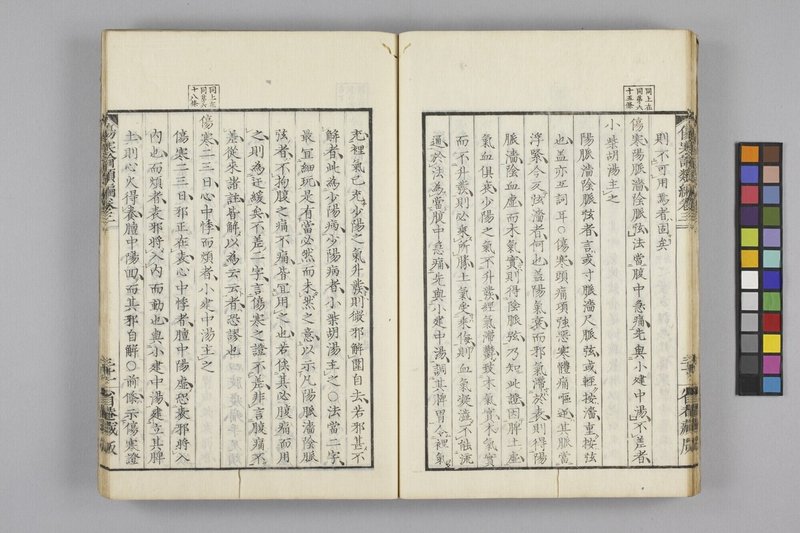 同上在
同第六
十五條
則不可用焉者固矣
傷寒陽脈濇陰脈弦法當腹中急痛先與小建中湯不差者
小柴胡湯主之
陽脈濇陰脈弦者言或寸脈濇尺脈弦或輕按濇重按弦
也蓋亦互詞耳○傷寒頭痛項強惡寒體痛嘔逆其脈當
浮緊今反弦濇者何也蓋陽氣衰而邪氣滯於表則得陽
脈濇陰血虛而木氣實則得陰脈弦乃知此證因脾土虛
氣血俱衰少陽之氣不升發經氣滯鬱致木氣實木氣實
而不升發則必乘所勝土氣受乘侮則血氣凝澁不能流
通於法為當腹中急痛先與小建中湯調其脾胃令裡氣
同上在
同第六
十八條
充裡氣已充少陽之氣升發則微邪解圍自去若邪甚不
解者此為少陽病少陽病者小柴胡湯主之○法當二字
最宜細玩是有當必然而未然之意以示凡陽脈濇陰脈
弦者不拘腹之痛不痛皆宜用之也若俟其必腹痛而用
之則為迂緩矣不差二字言傷寒之證不差非言腹痛不
差從來諸註皆解以為云云者恐謬也
傷寒二三日心中悸而煩者小建中湯主之
傷寒二三日邪正在表心中悸者膻中陽虛恐表邪將入
內也而煩者表邪將入內而動也與小建中湯建立其脾
土則心火得養膻中陽回而其邪自解○前條示傷寒證
傷寒論類編卷三